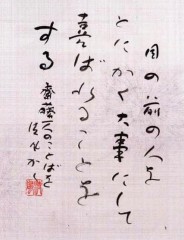 目の前の人を
とにかく大事にして
喜ばれることを
する
斎藤一人のことばを